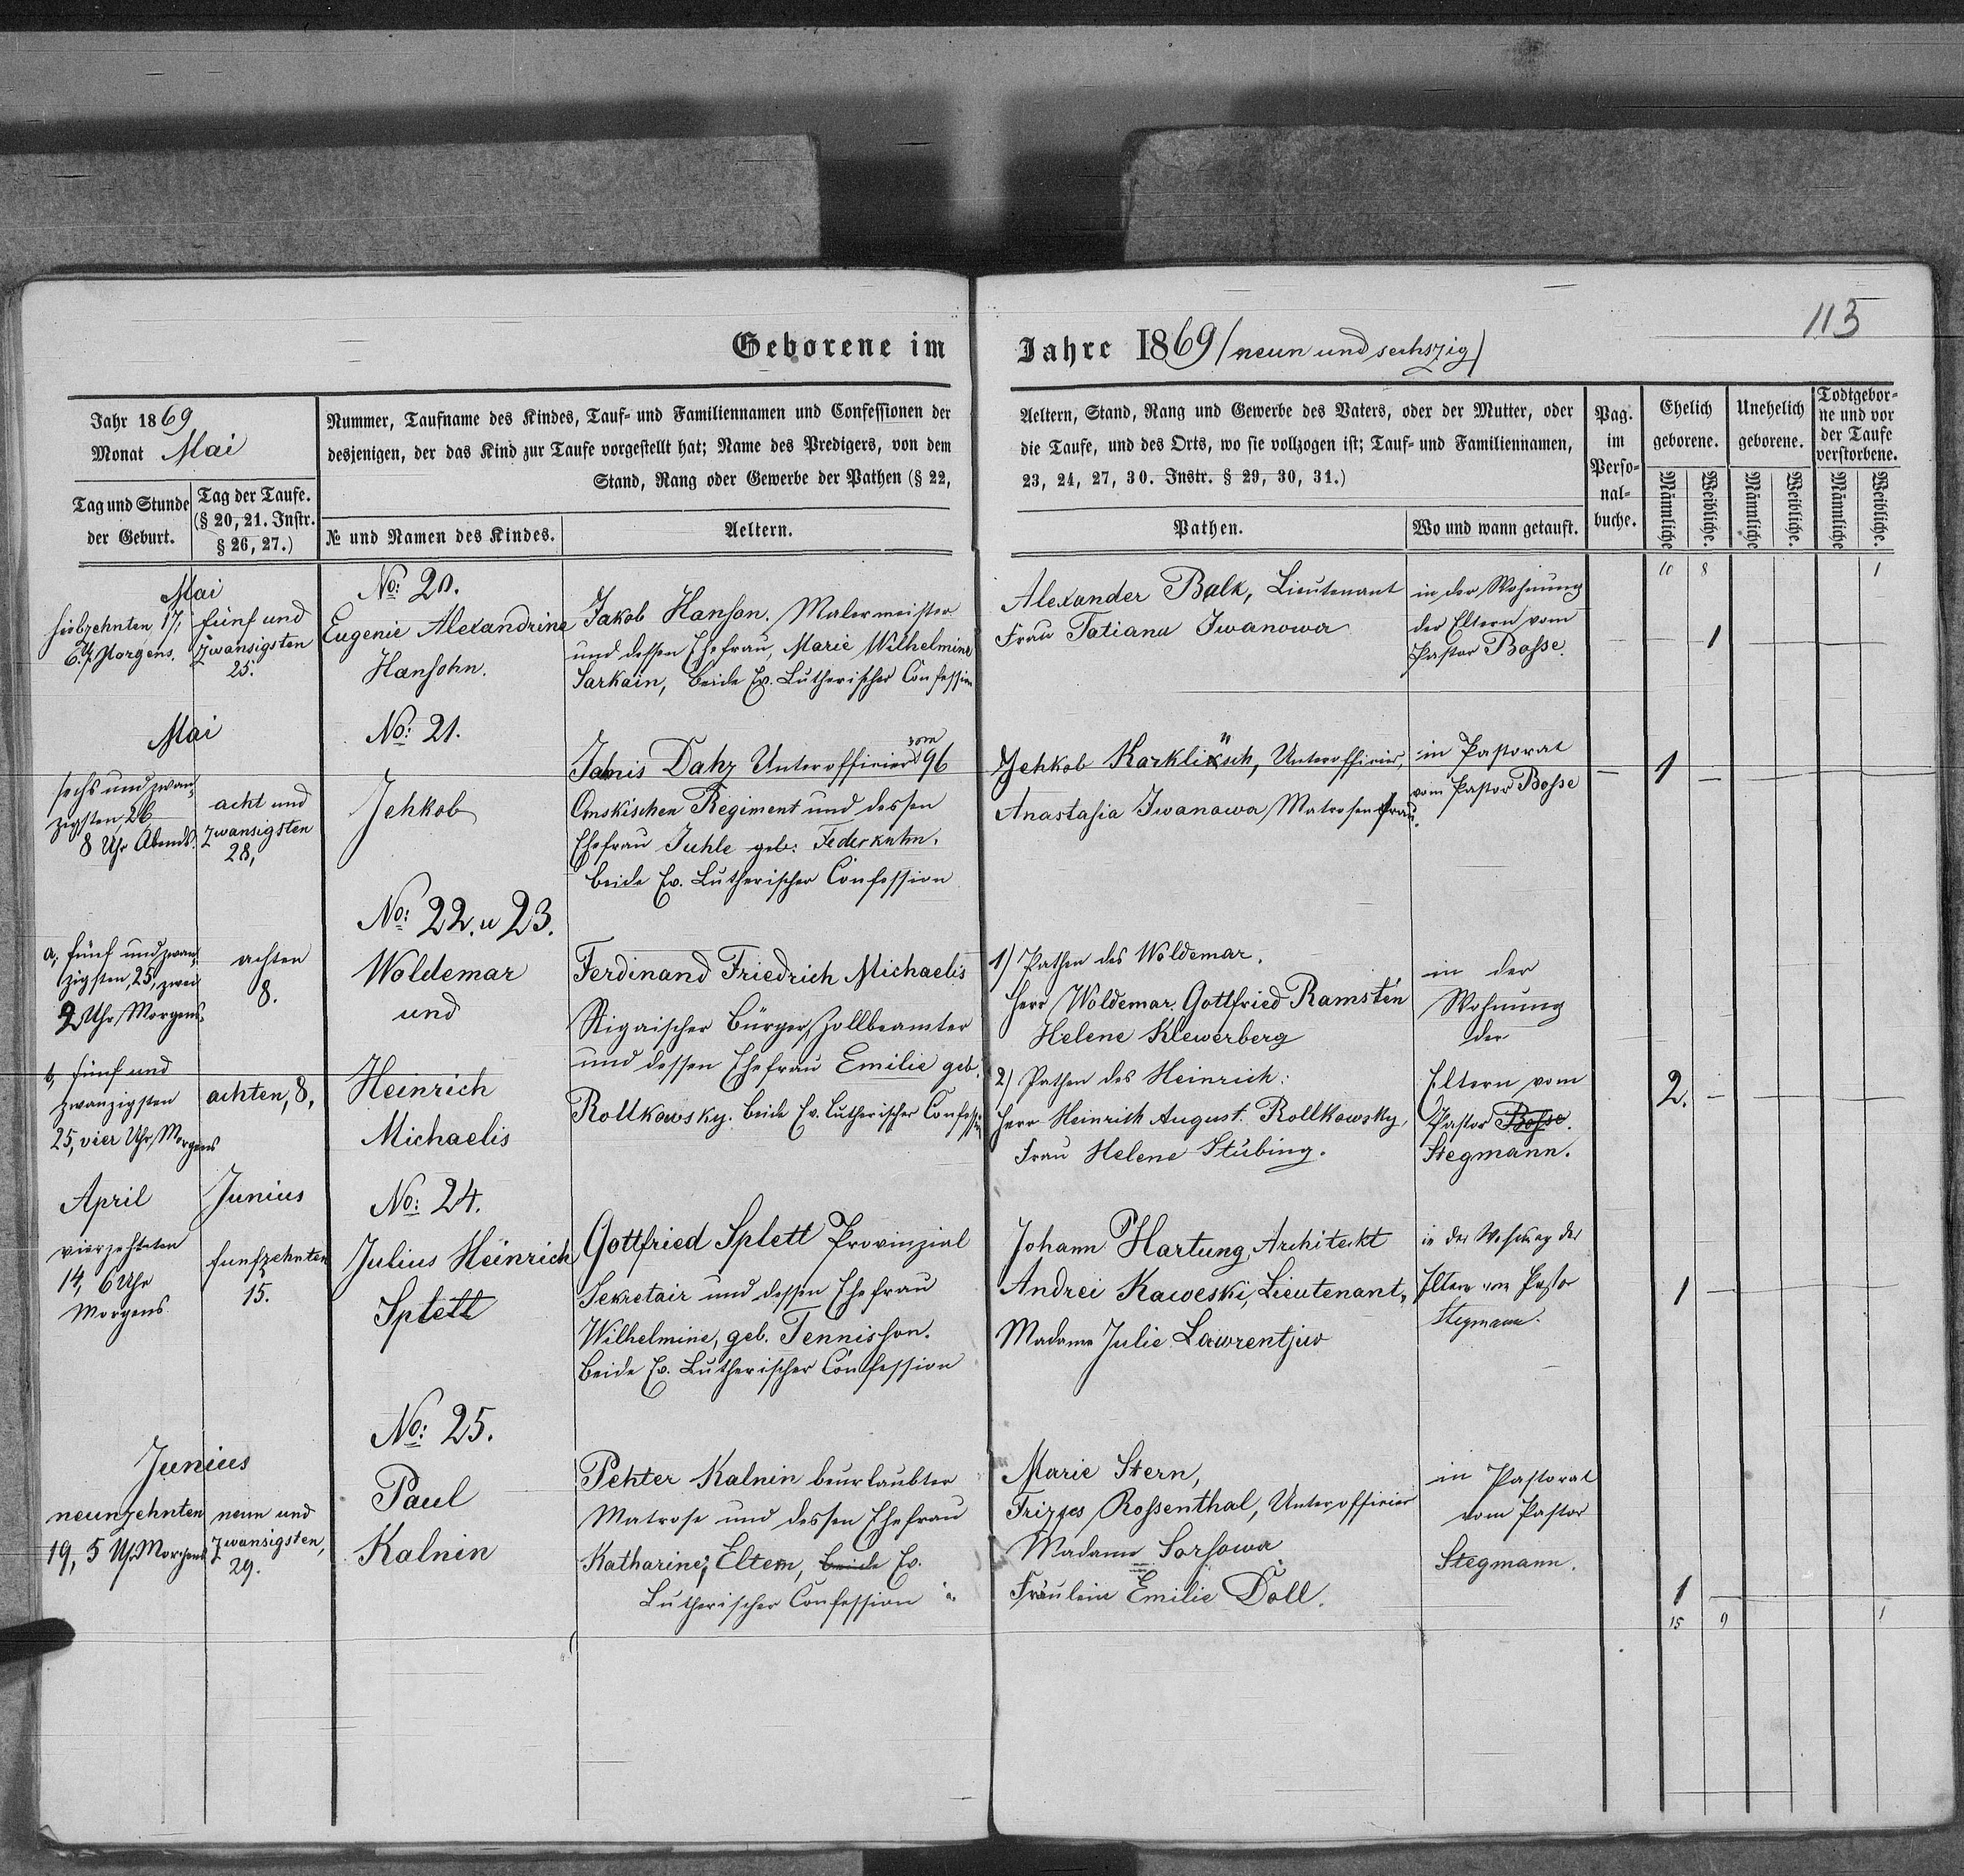 113
Geborene im Jahre 1869 (neun und sechszig)
Jahr 1869
Monat Mai
Tag und Stunde der Geburt.
Tag der Taufe. (§ 20, 21. Instr. § 26, 27.)
Nummer, Taufname des Kindes, Tauf- und Familiennamen und Confessionen der
desjenigen, der das Kind zur Taufe vorgestellt hat; Name des Predigers, von dem
Stand, Rang oder Gewerbe der Pathen (§ 22,
№ und Namen des Kindes.
Aeltern.
Aeltern, Stand, Rang und Gewerbe des Vaters, oder der Mutter, oder
die Taufe, und des Orts, wo sie vollzogen ist; Tauf- und Familiennamen,
23, 24, 27, 30. Instr. § 29, 30, 31.)
Pathen.
Wo und wann getauft.
Pag. im Perso-nal-buche.
Ehelich geborene.
Unehelich geborene.
Todtgebor-ne und vor der Taufe verstorbene.
Männliche
Weibliche.
Männliche
Weibliche.
Männliche
Weibliche.
10 8 1
Mai
siebzehnten 17,
6 U. Morgens.
fünf und
zwansigsten
25.
No: 20.
Eugenie Alexandrine
Hansohn.
Jakob Hanson. Malermeister
und dessen Ehefrau, Marie Wilhelmine
Sarkain, beide Ev. Lutherischer Confession
Alexander Balk, Lieutenant
Frau Tatiana Iwanowa
in der Wohnung
der Eltern vom
Pastor Bosse.
1
Mai
sechs und zwan-
zigsten, 26
8 Uhr Abends.
acht und
zwansigsten
28,
No: 21.
Jehkob
Jahnis Dahz Unteroffizier vom 96
Omskischen Regiment und dessen
Ehefrau Juhle geb:
beide Ev. Lutherischer Confession
Jehkob Karklinsch, Unteroffizier,
Anastasia Iwanawa, Matrosenfrau.
in Pastorat
vom Pastor Bosse
1
No: 22. u 23.
a, fünf und zwan-
zigsten, 25, zwei
2 Uhr Morgens.
achten
8.
Woldemar
und
b, fünf und
zwanzigsten
25, vier Uhr Morgens
achten, 8,
Heinrich
Michaelis
Ferdinand Friedrich Michaelis
Rigaischer Bürger, Zollbeamter
und dessen Ehefrau Emilie geb.
Rollkowsky. beide Ev. Lutherischer Confession
1) Pathen des Woldemar.
Herr Woldemar Gottfried Ramstén
Helene Klewerberg
2) Pathen des Heinrich:
Herr Heinrich August Rollkowsky,
Frau Helene Stübing.
in der
Wohnung
der
Eltern vom
Pastor Bosse.
Stegmann.
2.
April
vierzehnten
14, 6 Uhr
Morgens
Junius
funfzehnten
15.
No: 24.
Julius Heinrich
Splett
Gottfried Splett Provinzial
Sekretair und dessen Ehefrau
Wilhelmine, geb. Tennisson.
beide Ev. Lutherischer Confession
Johann Hartung, Architekt
Andrei Kaweski, Lieutenant,
Madame Julie Lawrentjew
in der Wohnung der
Eltern vom Pastor
Stegmann.
1
Junius
neunzehnten
19, 5 Uhr Morgens
neun und
zwansigsten,
29.
No: 25.
Paul
Kalnin
Pehter Kalnin beurlaubter
Matrose und dessen Ehefrau
Katharine, Eltern, beide Ev.
Lutherischer Confession
Marie Stern,
Rossenthal, Unteroffizier
Madame Sorsowa
Fräulein Emilie Doll.
in Pastorat
vom Pastor
Stegmann.
1
15 9 1